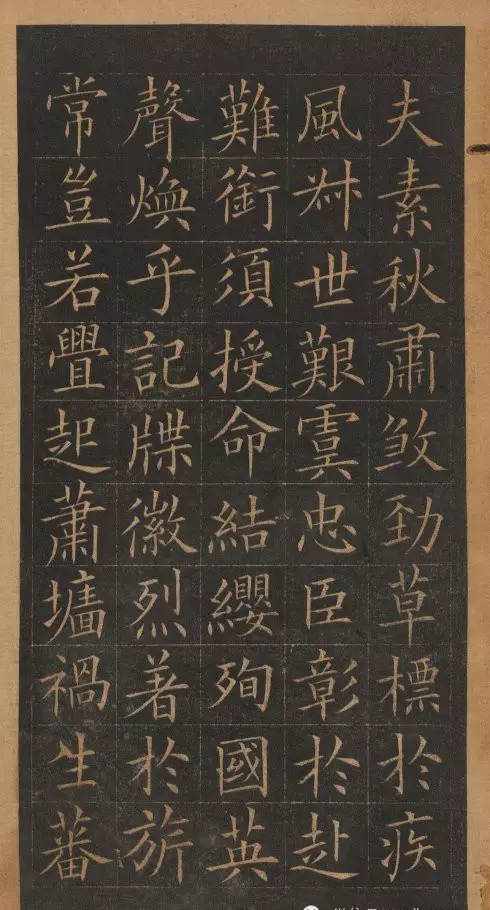 夫素秋肅煞勁草標於疾
風叔世艱虞忠臣彰於赴
難衘須授命結纓殉國英
聲煥乎記牒徽烈著於旂
常豈若舋起蕭墻禍生蕃